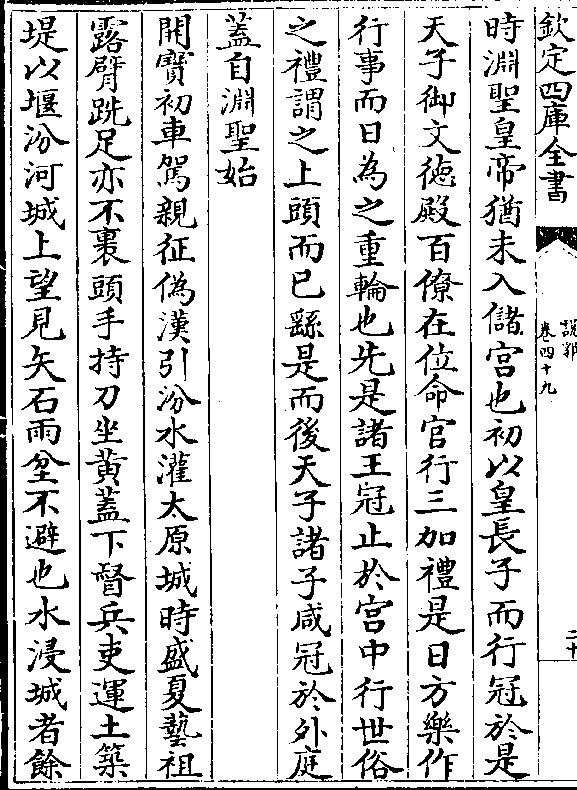 欽定四庫全書
說郛
卷四十九
二十
時淵聖皇帝猶未入儲宮也初以皇長子而行冠於是
天子御文徳殿百僚在位命官行三加禮是日方樂作
行事而日為之重輪也先是諸王冠止於宮中行世俗
之禮謂之上頭而已繇是而後天子諸子咸冠於外庭
蓋自淵聖始
開寶初車駕親征偽漢引汾水灌太原城時盛夏藝祖
露臂跣足亦不裹頭手持刀坐黄蓋下督兵吏運土築
堤以堰汾河城上望見矢石雨坌不避也水浸城者餘